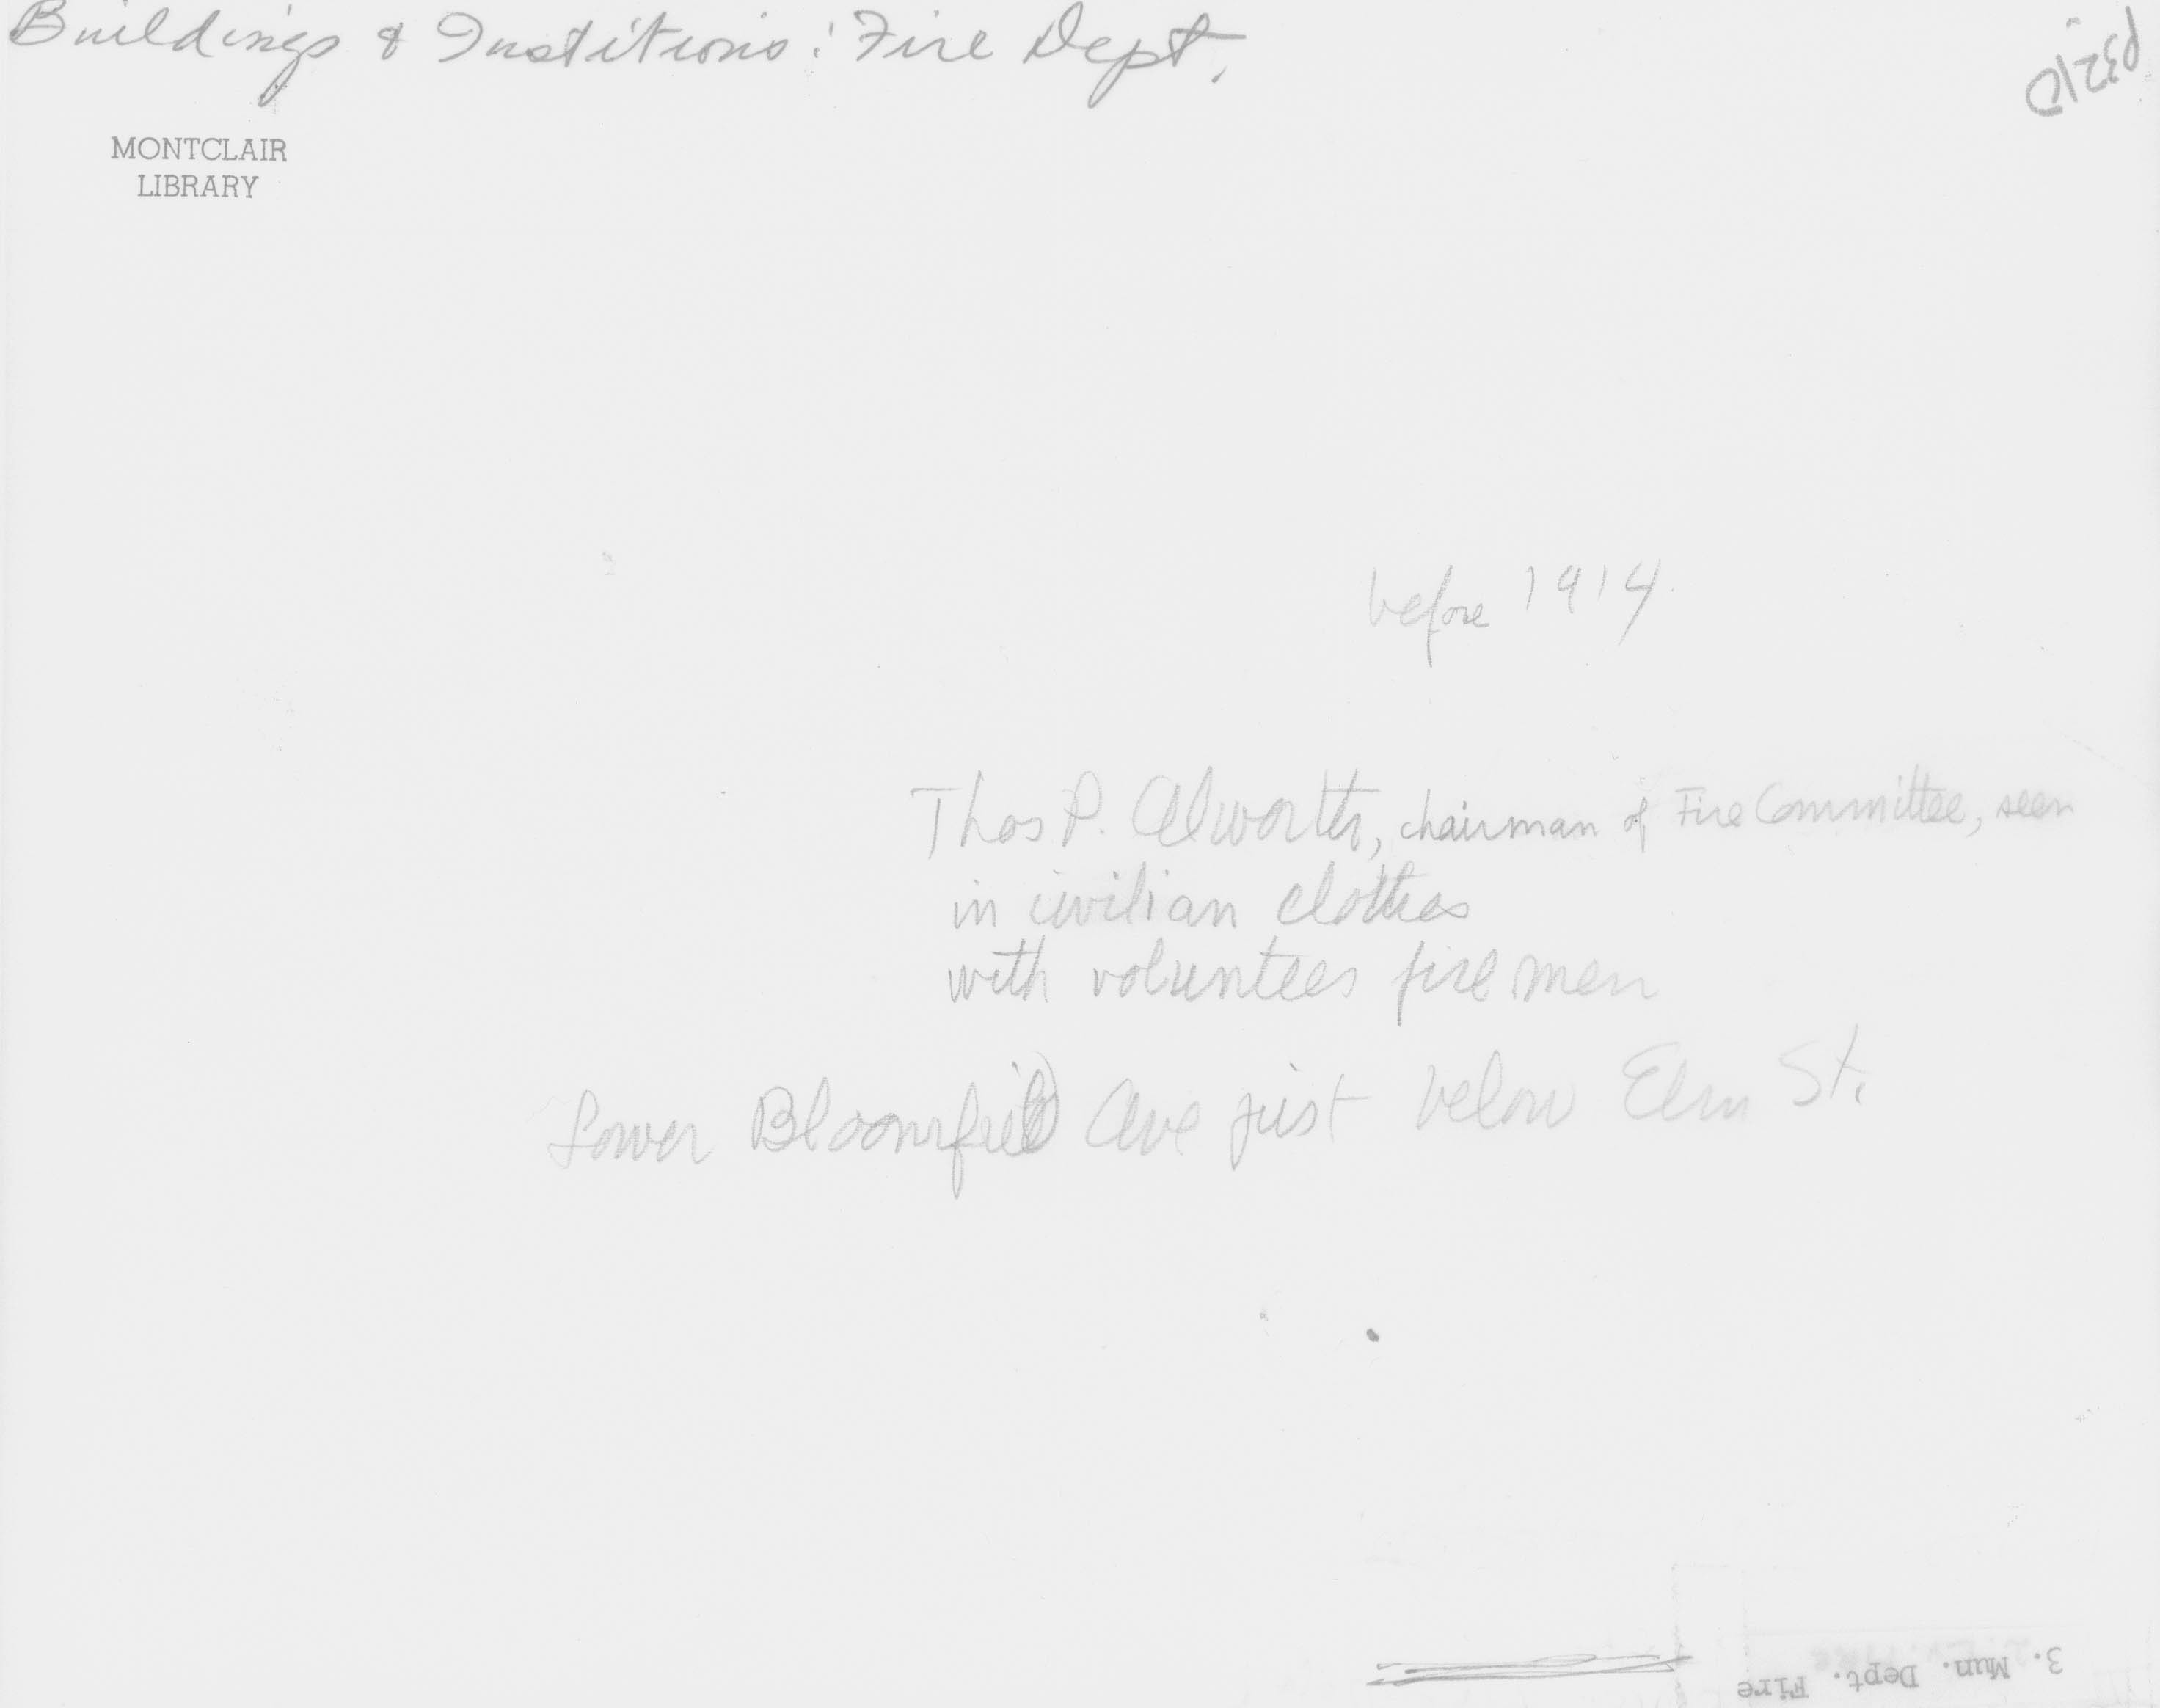 Buildings & Institions: Fire Dept.
MONTCLAIR
LIBRARY
before 1914
Thos P. Alworth, chairman of Fire Committee, seen
in civilian clothes
with volunteer firemen
Lower Bloomfield Ave just below Elm St.
3. Mun. Dept. Fire